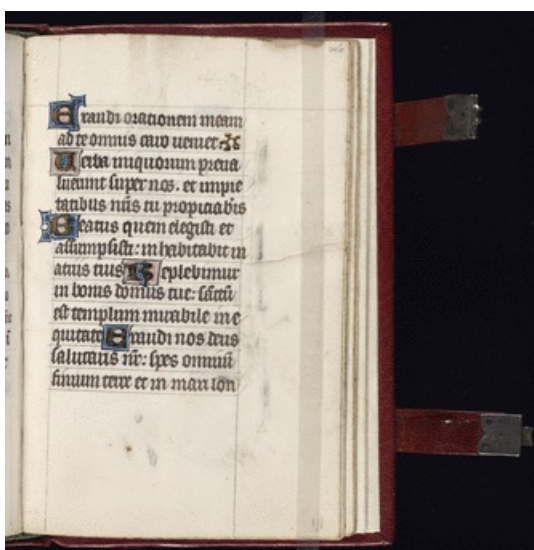 Exaudi orationem meam
ad te omnis caro veniet
Verba iniquorum preva
luerunt super nos. et impie
tatibus nris tu propiciabis
Beatus quem elegisti et
assumpsisti: inhabitabit in
atriis tuis Replebimur
in bonis domus tue: sanctu
est templum mirabile in e
quitate Exaudi nos deus
salutaris nr: spes omniu
finium terre et in mari lon